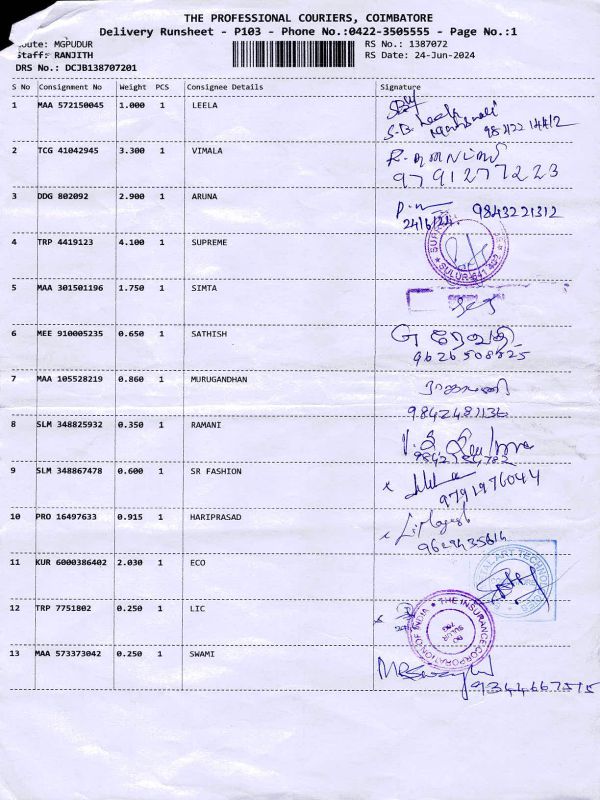 THE PROFESSIONAL COURIERS, COIMBATORE
Delivery Runsheet - P103 - Phone No.:0422-3505555 - Page No.:1
oute: MGPUDUR
RS No.: 1387072
Staff: RANJITH
RS Date: 24-Jun-2024
DRS No.: DCJB138707201
S No Consignment No Weight PCS Consignee Details Signature
1 MAA 572150045 1.000 1 LEELA
2 TCG 41042945 3.300 1 VIMALA
9791277223
3 DDG 802092 2.900 1 ARUNA
24/6/24 9843221312
4 TRP 4419123 4.100 1 SUPREME
SULUR-641 402
5 MAA 301501196 1.750 1 SIMTA
6 MEE 910005235 0.650 1 SATHISH
7 MAA 105528219 0.860 1 MURUGANDHAN
8 SLM 348825932 0.350 1 RAMANI
9 SLM 348867478 0.600 1 SR FASHION
9791976044
10 PRO 16497633 0.915 1 HARIPRASAD
11 KUR 6000386402 2.030 1 ECO
12 TRP 7751802 0.250 1 LIC
THE INSURANCE CORPORATION OF INDIA
SULUR
13 MAA 573373042 0.250 1 SWAMI
9344667515